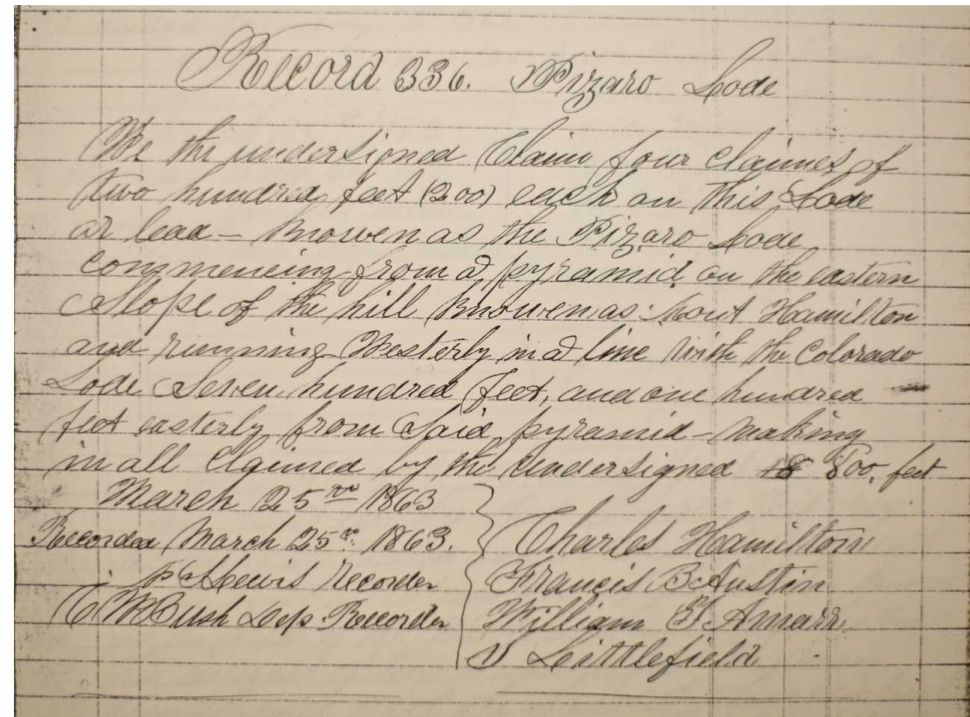 Record 336. Pizaro Lode
We the undersigned Claim four claimes of
two hundred feet (200) each on this Lode
or lead – Knowen as the Pizaro Lode
commencing from a pyramid on the eastern
Slope of the hill Knowen as Mout Hamilton
and running Westerly in a line with the Colorado
Lode Seven hundred feet, and one hundred
feet easterly from Said pyramid – making
in all Claimed by the undersigned 800, feet
March 25 1863
Recorded March 25 1863.
Lewis Recorder
C W Bush Dep Recorder
Charles Hamilton
Francis B Austin
William
Littlefield